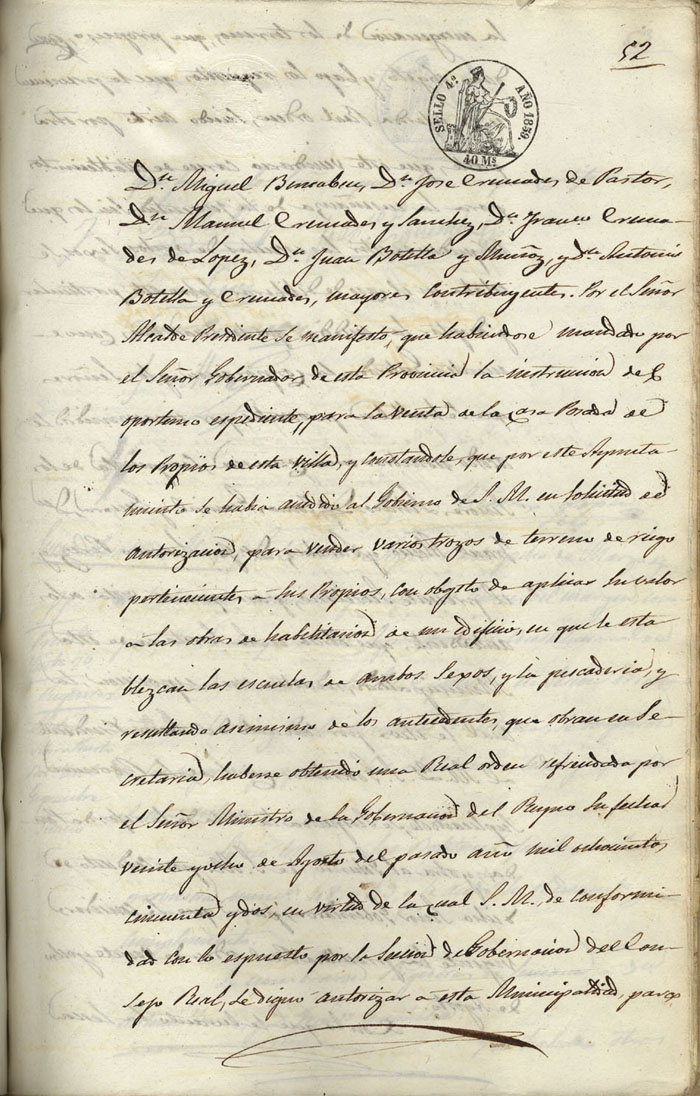 52
SELLO 4º AÑO 1859.
40 Ms
Dn. Miguel Dn. Jose Cremades de Pastor,
Dn. Manuel Cremades y Sanchez, Dn. Franco. Crema-
des de Lopez, Dn. Juan Botella y Muñoz, y Dn. Antonio
Botella y Cremades, mayores Contribuyentes. Por el Señor
Alcalde Presidente se manifestó, que habiendose mandado por
el Señor Gobernador de esta Provincia la instruccion del
oportuno espediente, para la venta de la casa Posada de
los Propios de esta Villa, y constandole, que por este Ayunta-
miento se habia acudido al Gobierno de S. M. en solicitud de
autorizacion, para vender varios trozos de terreno de riego
pertenecientes a sus Propios, con objeto de aplicar su valor
a las obras de habilitacion de un edificio, en que se esta
blezcan las escuelas de ambos sexos, y la pescaderia, y
resultando asimismo de los antecedentes, que obran en Se-
cretaria, haberse obtenido una Real orden refrendada por
el Señor Ministro de la Gobernacion del Reyno su fecha
veinte y ocho de Agosto del pasado año mil ochocientos
cincuenta y dos, en virtud de la cual S. M., de conformi-
dad con lo espuesto por la Seccion de Gobernacion del Con-
sejo Real, se dignó autorizar a esta Municipalidad, para